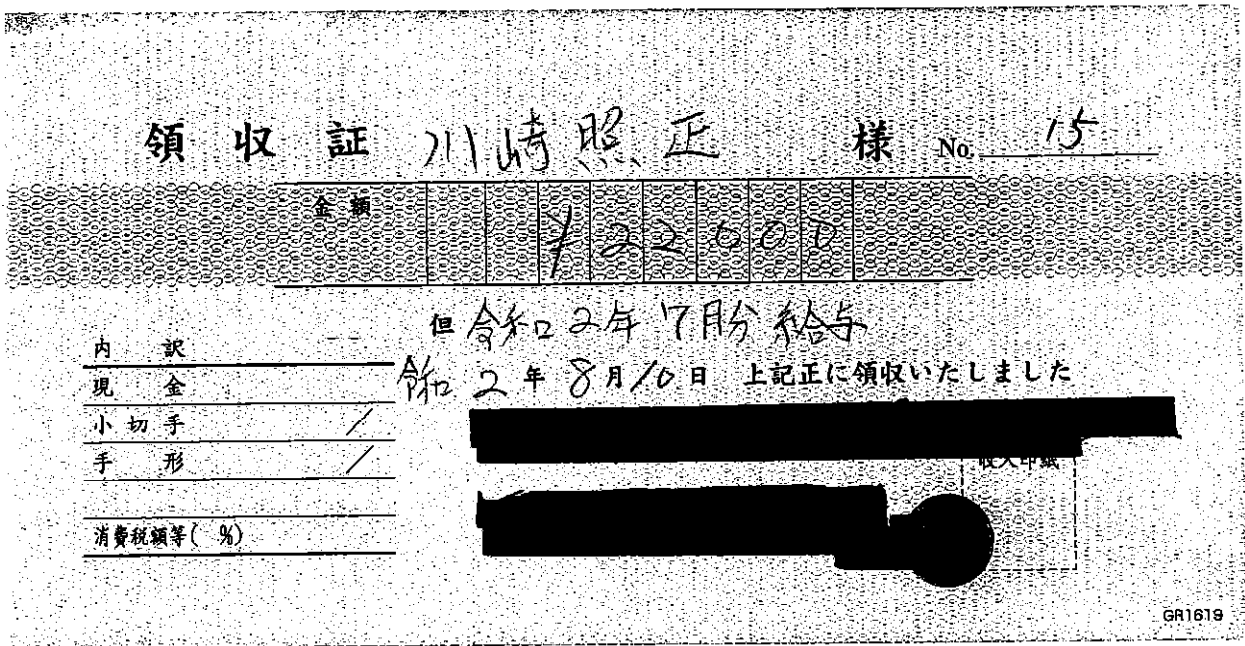 領収証 川崎照正 様 No. 15
金額 ¥22000
但 令和2年7月分給与
令和2年8月10日 上記正に領収いたしました
内訳
現金
小切手 /
手形 /
収入印紙
消費税額等( %)
GR1619